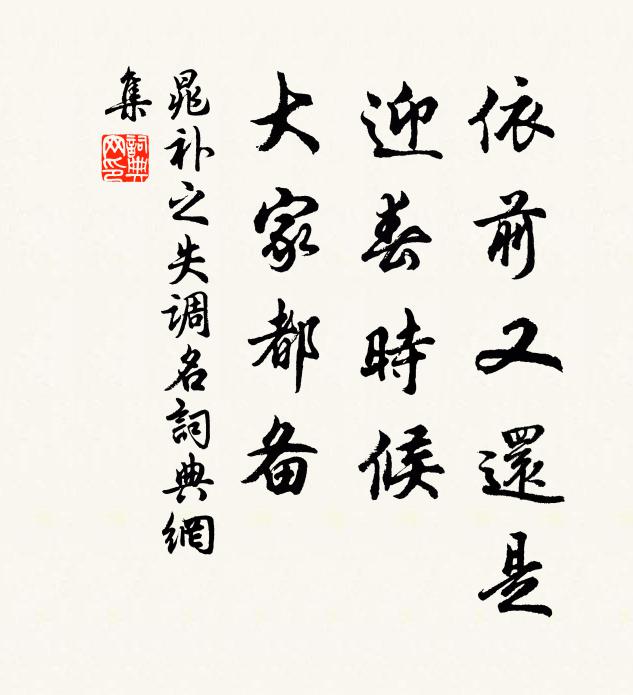 依前又還是
迎春時候
大家都备
晁补之失调名詞典網
集
詞典网印